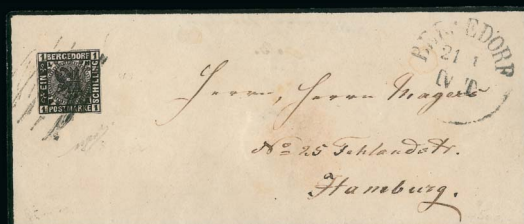 BERGEDORF
EIN
SCHILLING
POSTMARKE
1 1
1 1
BERGEDORF
21 1
IV T
Herrn, Herrn Mageus
No 25 Fehlandstr.
Hamburg.